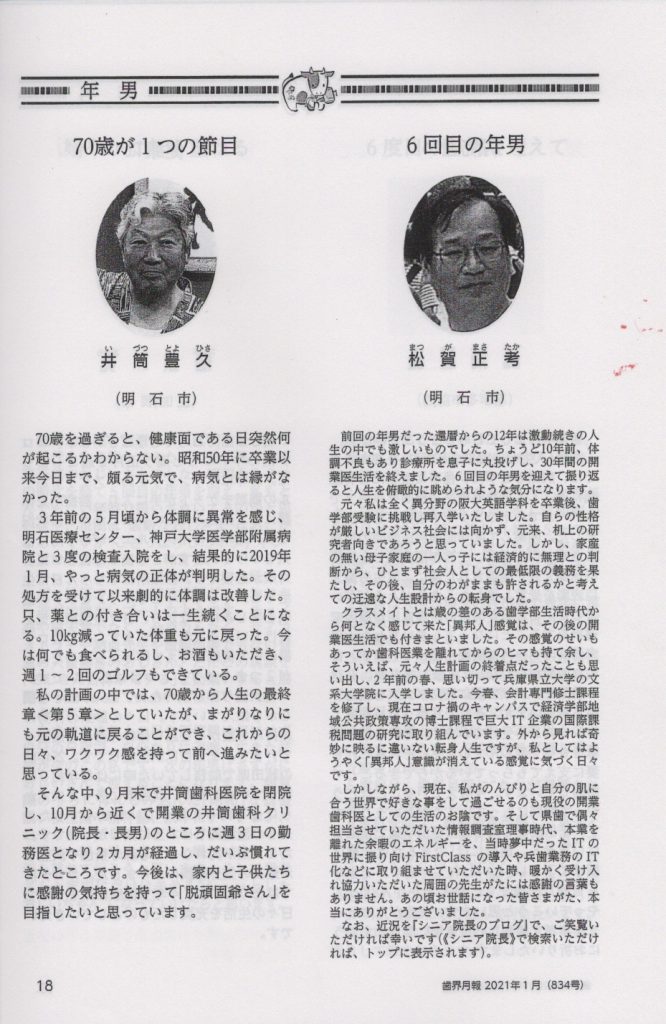 年男
70歳が1つの節目
井筒豊久
いづつとよひさ
(明石市)
70歳を過ぎると、健康面である日突然何
が起こるかわからない。昭和50年に卒業以
来今日まで、頗る元気で、病気とは縁がな
かった。
3年前の5月頃から体調に異常を感じ、
明石医療センター、神戸大学医学部附属病
院と3度の検査入院をし、結果的に2019年
1月、やっと病気の正体が判明した。その
処方を受けて以来劇的に体調は改善した。
只、薬との付き合いは一生続くことにな
る。10kg減っていた体重も元に戻った。今
は何でも食べられるし、お酒もいただき、
週1~2回のゴルフもできている。
私の計画の中では、70歳から人生の最終
章<第5章>としていたが、まがりなりに
も元の軌道に戻ることができ、これからの
日々、ワクワク感を持って前へ進みたいと
思っている。
そんな中、9月末で井筒歯科医院を閉院
し、10月から近くで開業の井筒歯科クリ
ニック(院長・長男)のところに週3日の勤
務医となり2カ月が経過し、だいぶ慣れて
きたところです。今後は、家内と子供たち
に感謝の気持ちを持って「脱頑固爺さん」を
目指したいと思っています。
6回目の年男
まつがまさたか
松賀正考
(明石市)
前回の年男だった還暦からの12年は激動続きの人
生の中でも激しいものでした。ちょうど10年前、体
調不良もあり診療所を息子に丸投げし、30年間の開
業医生活を終えました。6回目の年男を迎えて振り返
ると人生を俯瞰的に眺められような気分になります。
元々私は全く異分野の阪大英語学科を卒業後、歯
学部受験に挑戦し再入学いたしました。自らの性格
が厳しいビジネス社会には向かず、元来、机上の研
究者向きであろうと思っていました。しかし、家産
の無い母子家庭の一人っ子には経済的に無理との判
断から、ひとまず社会人としての最低限の義務を果
たし、その後、自分のわがままも許されるかと考え
ての迂遠な人生設計からの転身でした。
クラスメイトとは歳の差のある歯学部生活時代か
ら何となく感じて来た「異邦人」感覚は、その後の開
業医生活でも付きまといました。その感覚のせいも
あってか歯科医業を離れてからのヒマも持て余し、
そういえば、元々人生計画の終着点だったことも思
い出し、2年前の春、思い切って兵庫県立大学の文
系大学院に入学しました。今春、会計専門修士課程
を修了し、現在コロナ禍のキャンパスで経済学部地
域公共政策専攻の博士課程で巨大IT企業の国際課
税問題の研究に取り組んでいます。外から見れば奇
妙に映るに違いない転身人生ですが、私としてはよ
うやく「異邦人」意識が消えている感覚に気づく日々
です。
しかしながら、現在、私がのんびりと自分の肌に
合う世界で好きな事をして過ごせるのも現役の開業
歯科医としての生活のお陰です。そして県歯で偶々
担当させていただいた情報調査室理事時代、本業を
離れた余暇のエネルギーを、当時夢中だったITの
世界に振り向けFirstClassの導入や兵歯業務のIT
化などに取り組ませていただいた時、暖かく受け入
れ協力いただいた周囲の先生がたには感謝の言葉も
ありません。あの頃お世話になった皆さまがた、本
当にありがとうございました。
なお、近況を「シニア院長のブログ」で、ご笑覧い
ただければ幸いです(《シニア院長》で検索いただけ
れば、トップに表示されます)。
18
歯界月報 2021年1月(834号)